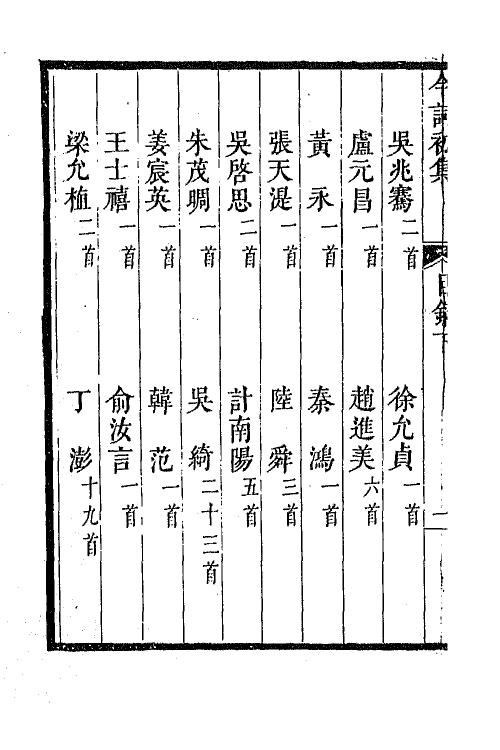 今詞初集 目錄下 一
吳兆騫二首 徐允貞一首
盧元昌一首 趙進美六首
黃永一首 秦鴻一首
張天湜一首 陸舜三首
吳啓思二首 計南陽五首
朱茂晭一首 吳綺二十三首
姜宸英一首 韓范一首
王士禧一首 俞汝言一首
梁允植二首 丁澎十九首